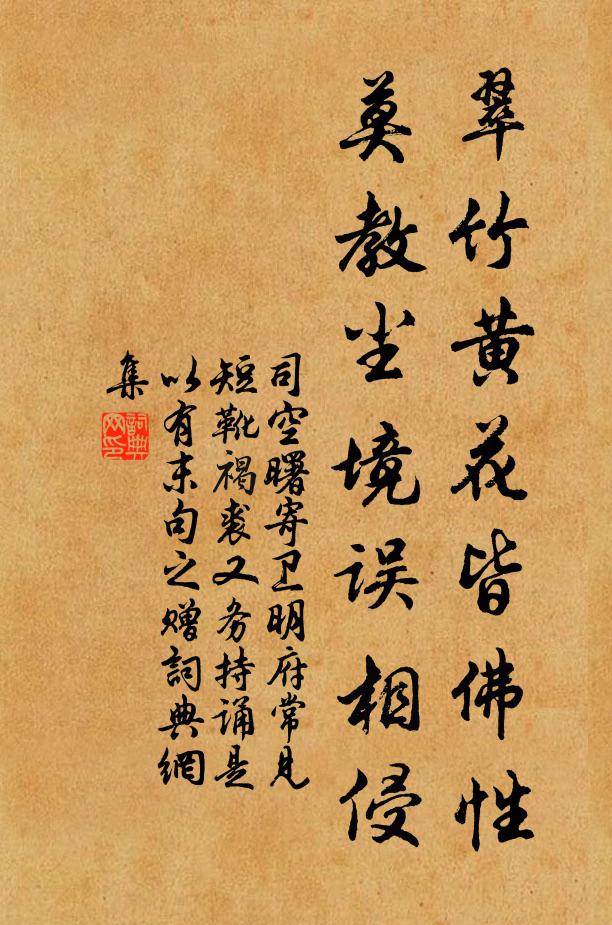 翠竹黄花皆佛性
莫教尘境误相侵
司空曙寄卫明府常见
短靴褐裘又务持诵是
以有末句之赠詞典網
集
詞典
网印